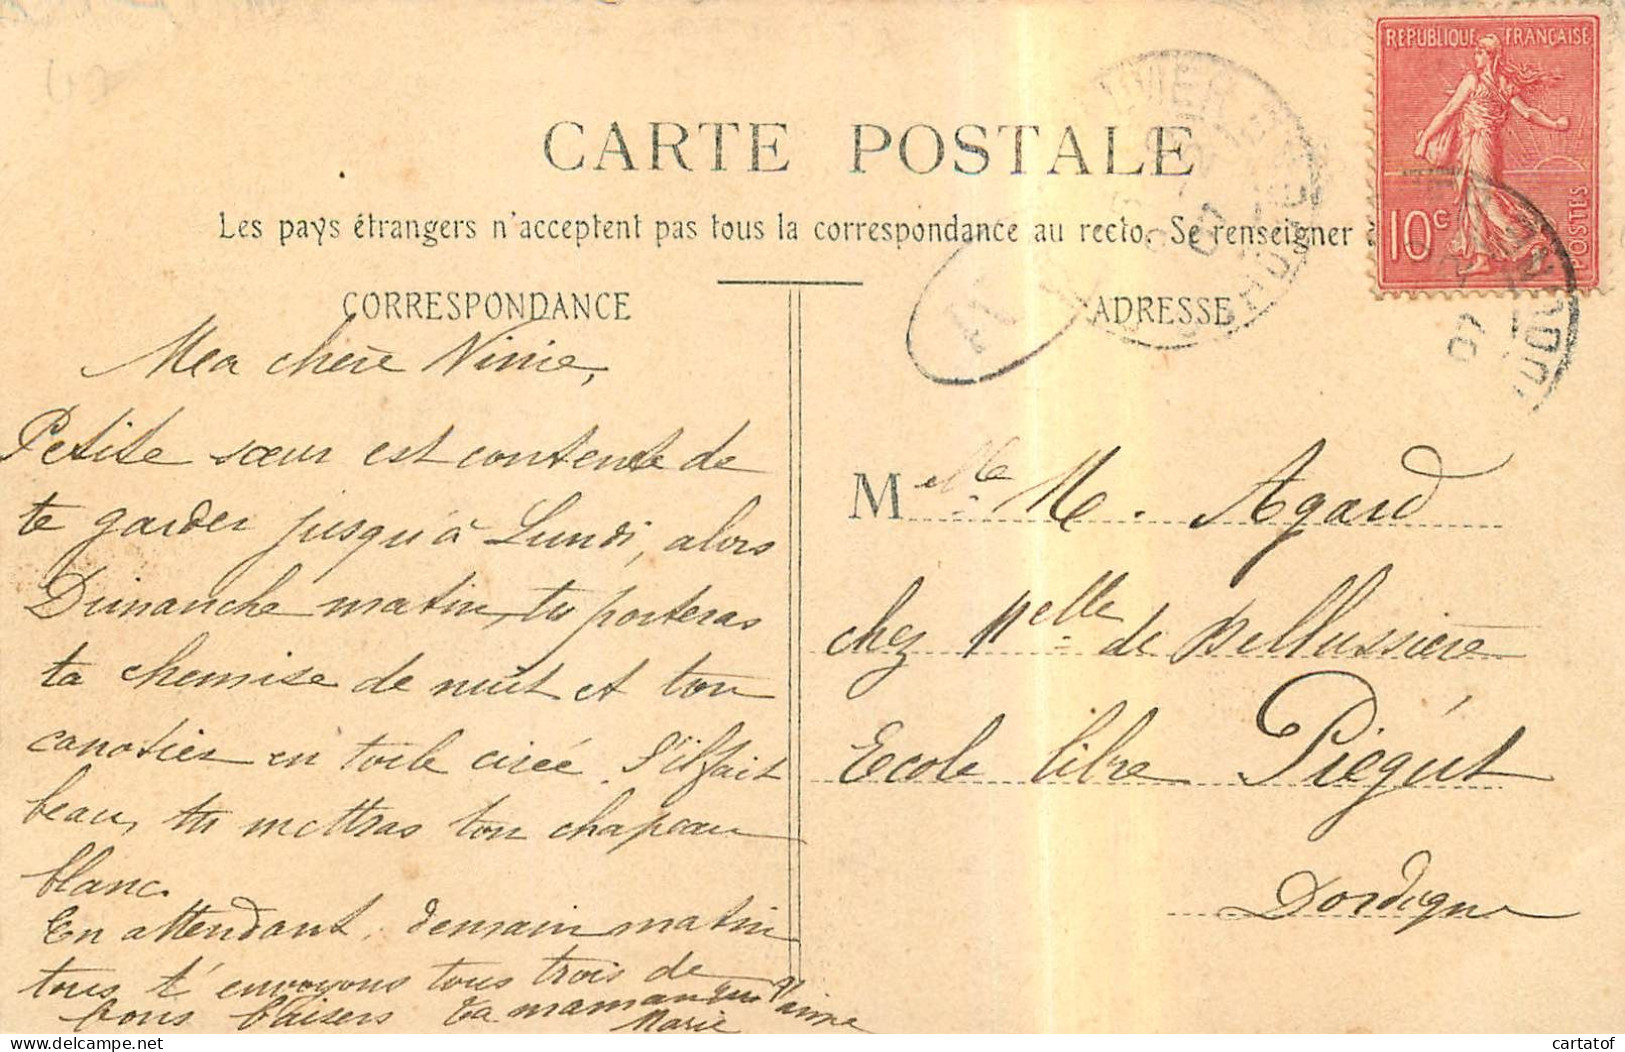 CARTE POSTALE
Les pays étrangers n'acceptent pas tous la correspondance au recto. Se renseigner à
CORRESPONDANCE
Ma chère Ninie,
Petite sœur est contente de
te garder jusqu'à Lundi, alors
Dimanche matin, tu porteras
ta chemise de nuit et ton
canotier en toile cirée. S'il fait
beau, tu mettras ton chapeau
blanc.
En attendant, demain matin
tous t'envoyons tous trois de
bons baisers ta maman qui t'aime
Marie
ADRESSE
Melle M. Agard
chez Melle de Bellussière
Ecole libre Piégut
Dordogne
REPUBLIQUE FRANÇAISE
10c
POSTES
07
07
cartatof